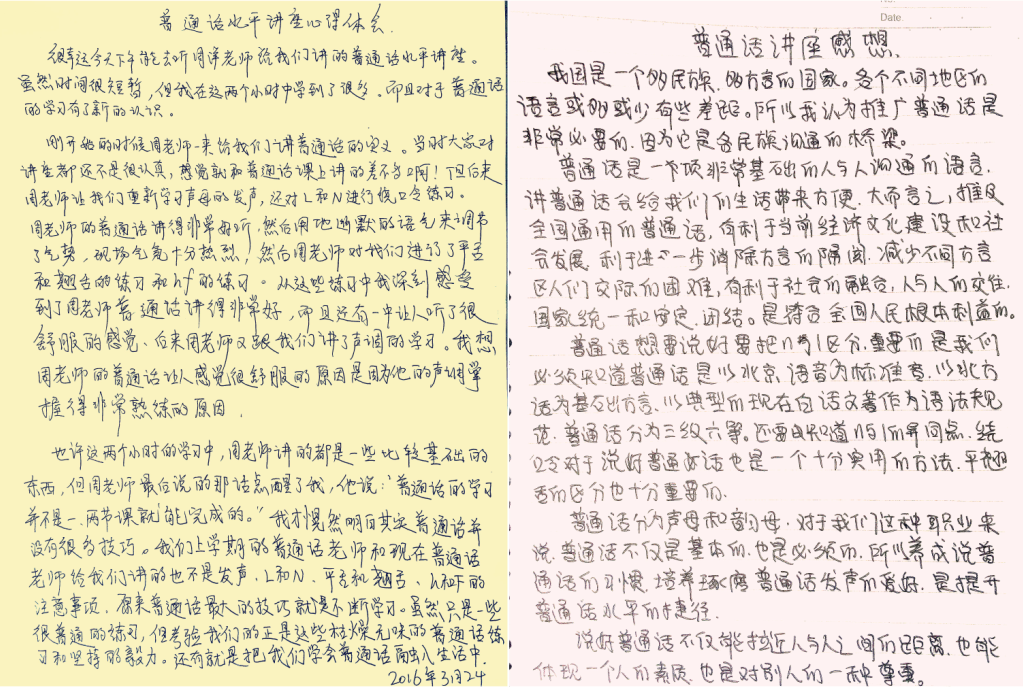 普通话水平讲座心得体会.
很幸运今天下午能去听周洋老师给我们讲的普通话水平讲座。
虽然时间很短暂，但我在这两个小时中学到了很多。而且对于普通话
的学习有了新的认识。
刚开始的时候周老师一来给我们讲普通话的定义。当时大家对
讲座都还不是很认真，感觉就和普通话课上讲的差不多啊！但后来
周老师让我们重新学习声母的发声，还对L和N进行绕口令练习。
周老师的普通话讲得非常好听，然后用他幽默的语气来调节
了气势，现场气氛十分热烈，然后周老师对我们进行了平舌
和翘舌的练习和hf的练习。从这些练习中我深刻感受
到了周老师普通话讲得非常好，而且还有一中让人听了很
舒服的感觉、后来周老师又跟我们讲了声调的学习。我想
周老师的普通话让人感觉很舒服的原因是因为他的声调掌
握得非常熟练的原因.
也许这两个小时的学习中，周老师讲的都是一些比较基础的
东西，但周老师最后说的那话点醒了我，他说：“普通话的学习
并不是一、两节课就能完成的。”我才恍然明白其实普通话并
没有很多技巧。我们上学期的普通话老师和现在普通话
老师给我们讲的也不是发声、L和N、平舌和翘舌、h和F的
注意事项，原来普通话最大的技巧就是不断学习。虽然只是一些
很普通的练习，但考验我们的正是这些枯燥无味的普通话练
习和坚持的毅力。还有就是把我们学会普通话融入生活中.
2016年3月24
Date.
普通话讲座感想.
我国是一个多民族、多方言的国家。各个不同地区的
语言或多或少有些差距。所以我认为推广普通话是
非常必要的.因为它是各民族沟通的桥梁。
普通话是一下项非常基础的人与人沟通的语言.
讲普通话会给我们的生活带来方便.大而言之,推及
全国通用的普通话，有利于当前经济文化建设和社
会发展.利于进一步消除方言的隔阂.减少不同方言
区人们交际的困难,有利于社会的融合,人与人的交往.
国家统一和安定.团结。是符合全国人民根本利益的。
普通话想要说好要把n与l区分.重要的是我们
必须知道普通话是以北京语音为标准音.以北方
话为基础方言、以典型的现在白话文著作为语法规
范.普通话分为三级六等。还要知道n与l的异同点.绕
口令对于说好普通话也是一个十分实用的方法.平翘
舌的区分也十分重要的.
普通话分为声母和韵母.对于我们这种职业来
说.普通话不仅是基本的.也是必须的.所以养成说普
通话的习惯.培养琢磨普通话发声的爱好.是提升
普通话水平的捷径.
说好普通话不仅能拉近人与人之间的距离.也能
体现一个人的素质.也是对别人的一种尊重。